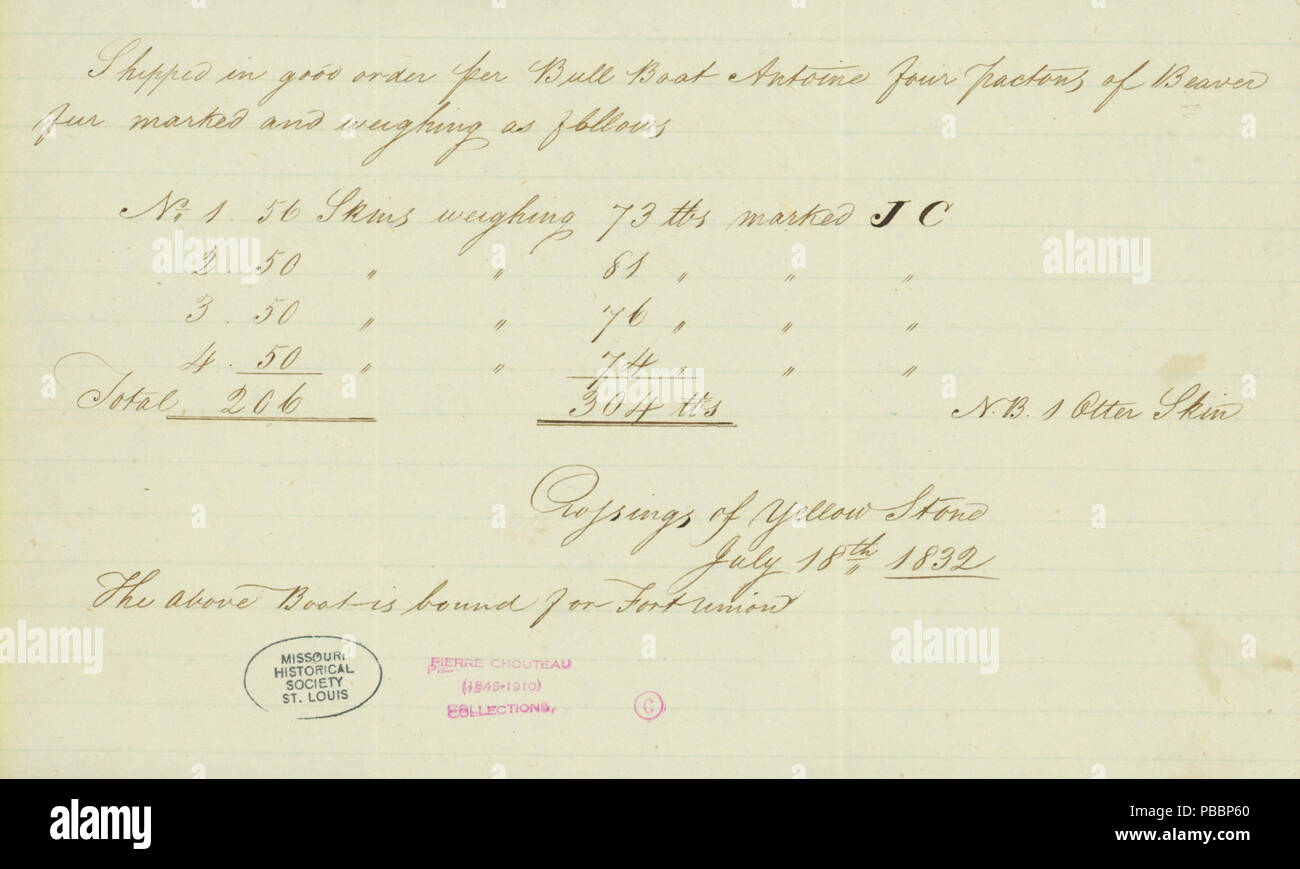 Shipped in good order per Bull Boat Antoine four pactons of Beaver
fur marked and weighing as follows
No. 1 56 Skins weighing 73 lbs marked J C
2. 50 " " 81 " " "
3. 50 " " 76 " " "
4. 50 " " 74 " " "
Total 206 304 lbs N.B. 1 Otter Skin
Crossings of Yellow Stone
July 18th 1832
The above Boat is bound for Fort Union
MISSOURI
HISTORICAL
SOCIETY
ST. LOUIS
PIERRE CHOUTEAU
(1849-1910)
COLLECTIONS.
C
alamy
Image ID: PBBP60
www.alamy.com